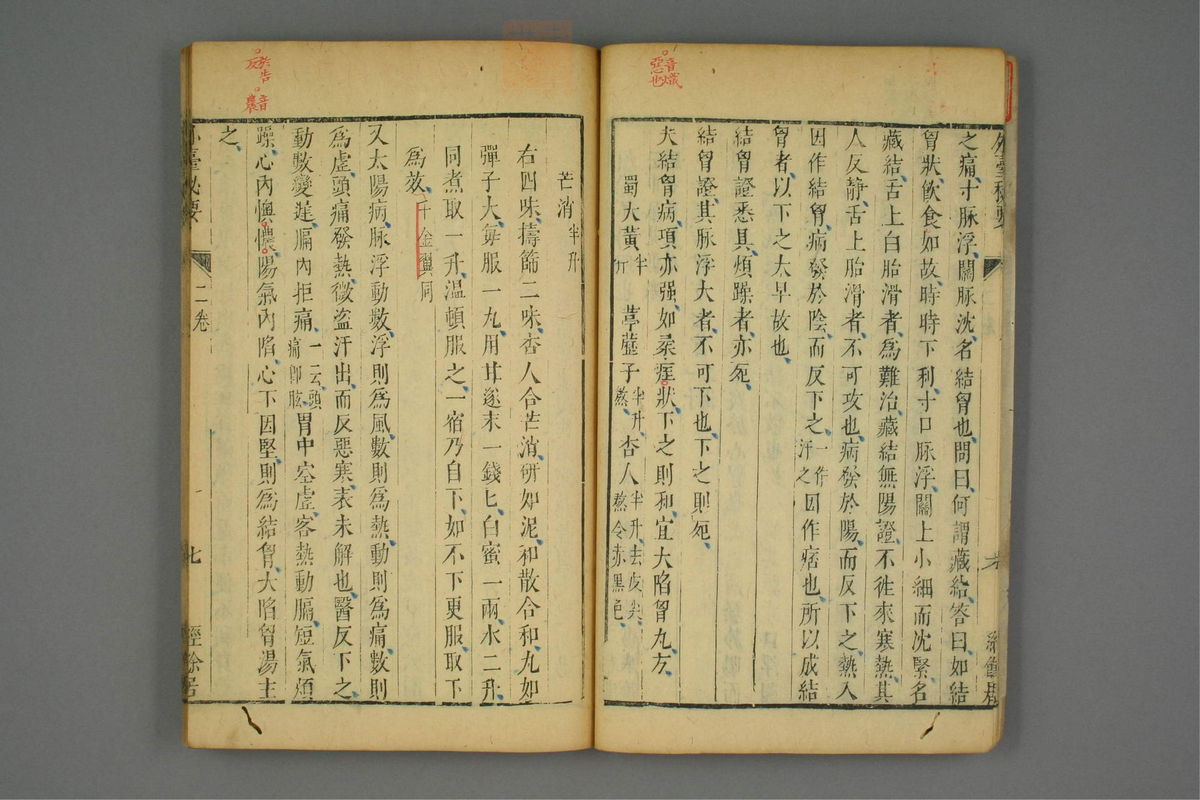 音熾
惡也
之痛寸脉浮關脉沈名結胷也問曰何謂藏結答曰如結
胷狀飲食如故時時下利寸口脉浮關上小細而沈緊名
藏結舌上白胎滑者爲難治藏結無陽證不徃來寒熱其
人反静舌上胎滑者不可攻也病發於陰而反下之熱入
因作結胷病發於陰而反下之一作汗之因作痞也所以成結
胷者以下之太早故也
結胷證悉具煩躁者亦死
結胷證其脉浮大者不可下也下之則死
夫結胷病項亦强如柔痓狀下之則和宜大陷胷丸方
蜀大黄半斤 葶藶子半升熬 杏人半升去皮尖熬令赤黑色
芒消半升
右四味擣篩二味杏人合芒消研如泥和散合和丸如
彈子大每服一丸用甘遂末一錢匕白蜜一兩水二升
同煮取一升温頓服之一宿乃自下如不下更服取下
爲效千金翼同
又太陽病脉浮動數浮則爲風數則爲熱動則爲痛數則
爲虛頭痛發熱微盗汗出而反惡寒表未解也醫反下之
動數變遟膈内拒痛一云頭痛卽眩胃中空虛客熱動膈短氣煩
躁心内懊儂陽氣内陷心下因堅則爲結胷大陷胷湯主
之
外臺秘要
二卷
七
經餘居